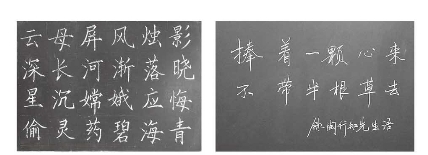 云母屏风烛影
深长河渐落晓
星沉嫦娥应悔
偷灵药碧海青
捧着一颗心来
不带半根草去
陶行知先生语